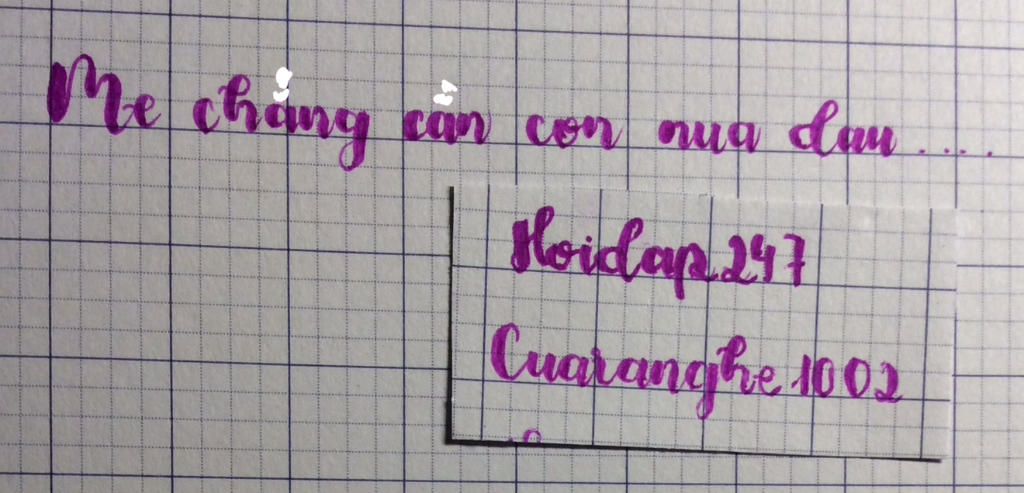 Me chẳng cần con nua dau ....
Hoidap247
Cuaranghe1002